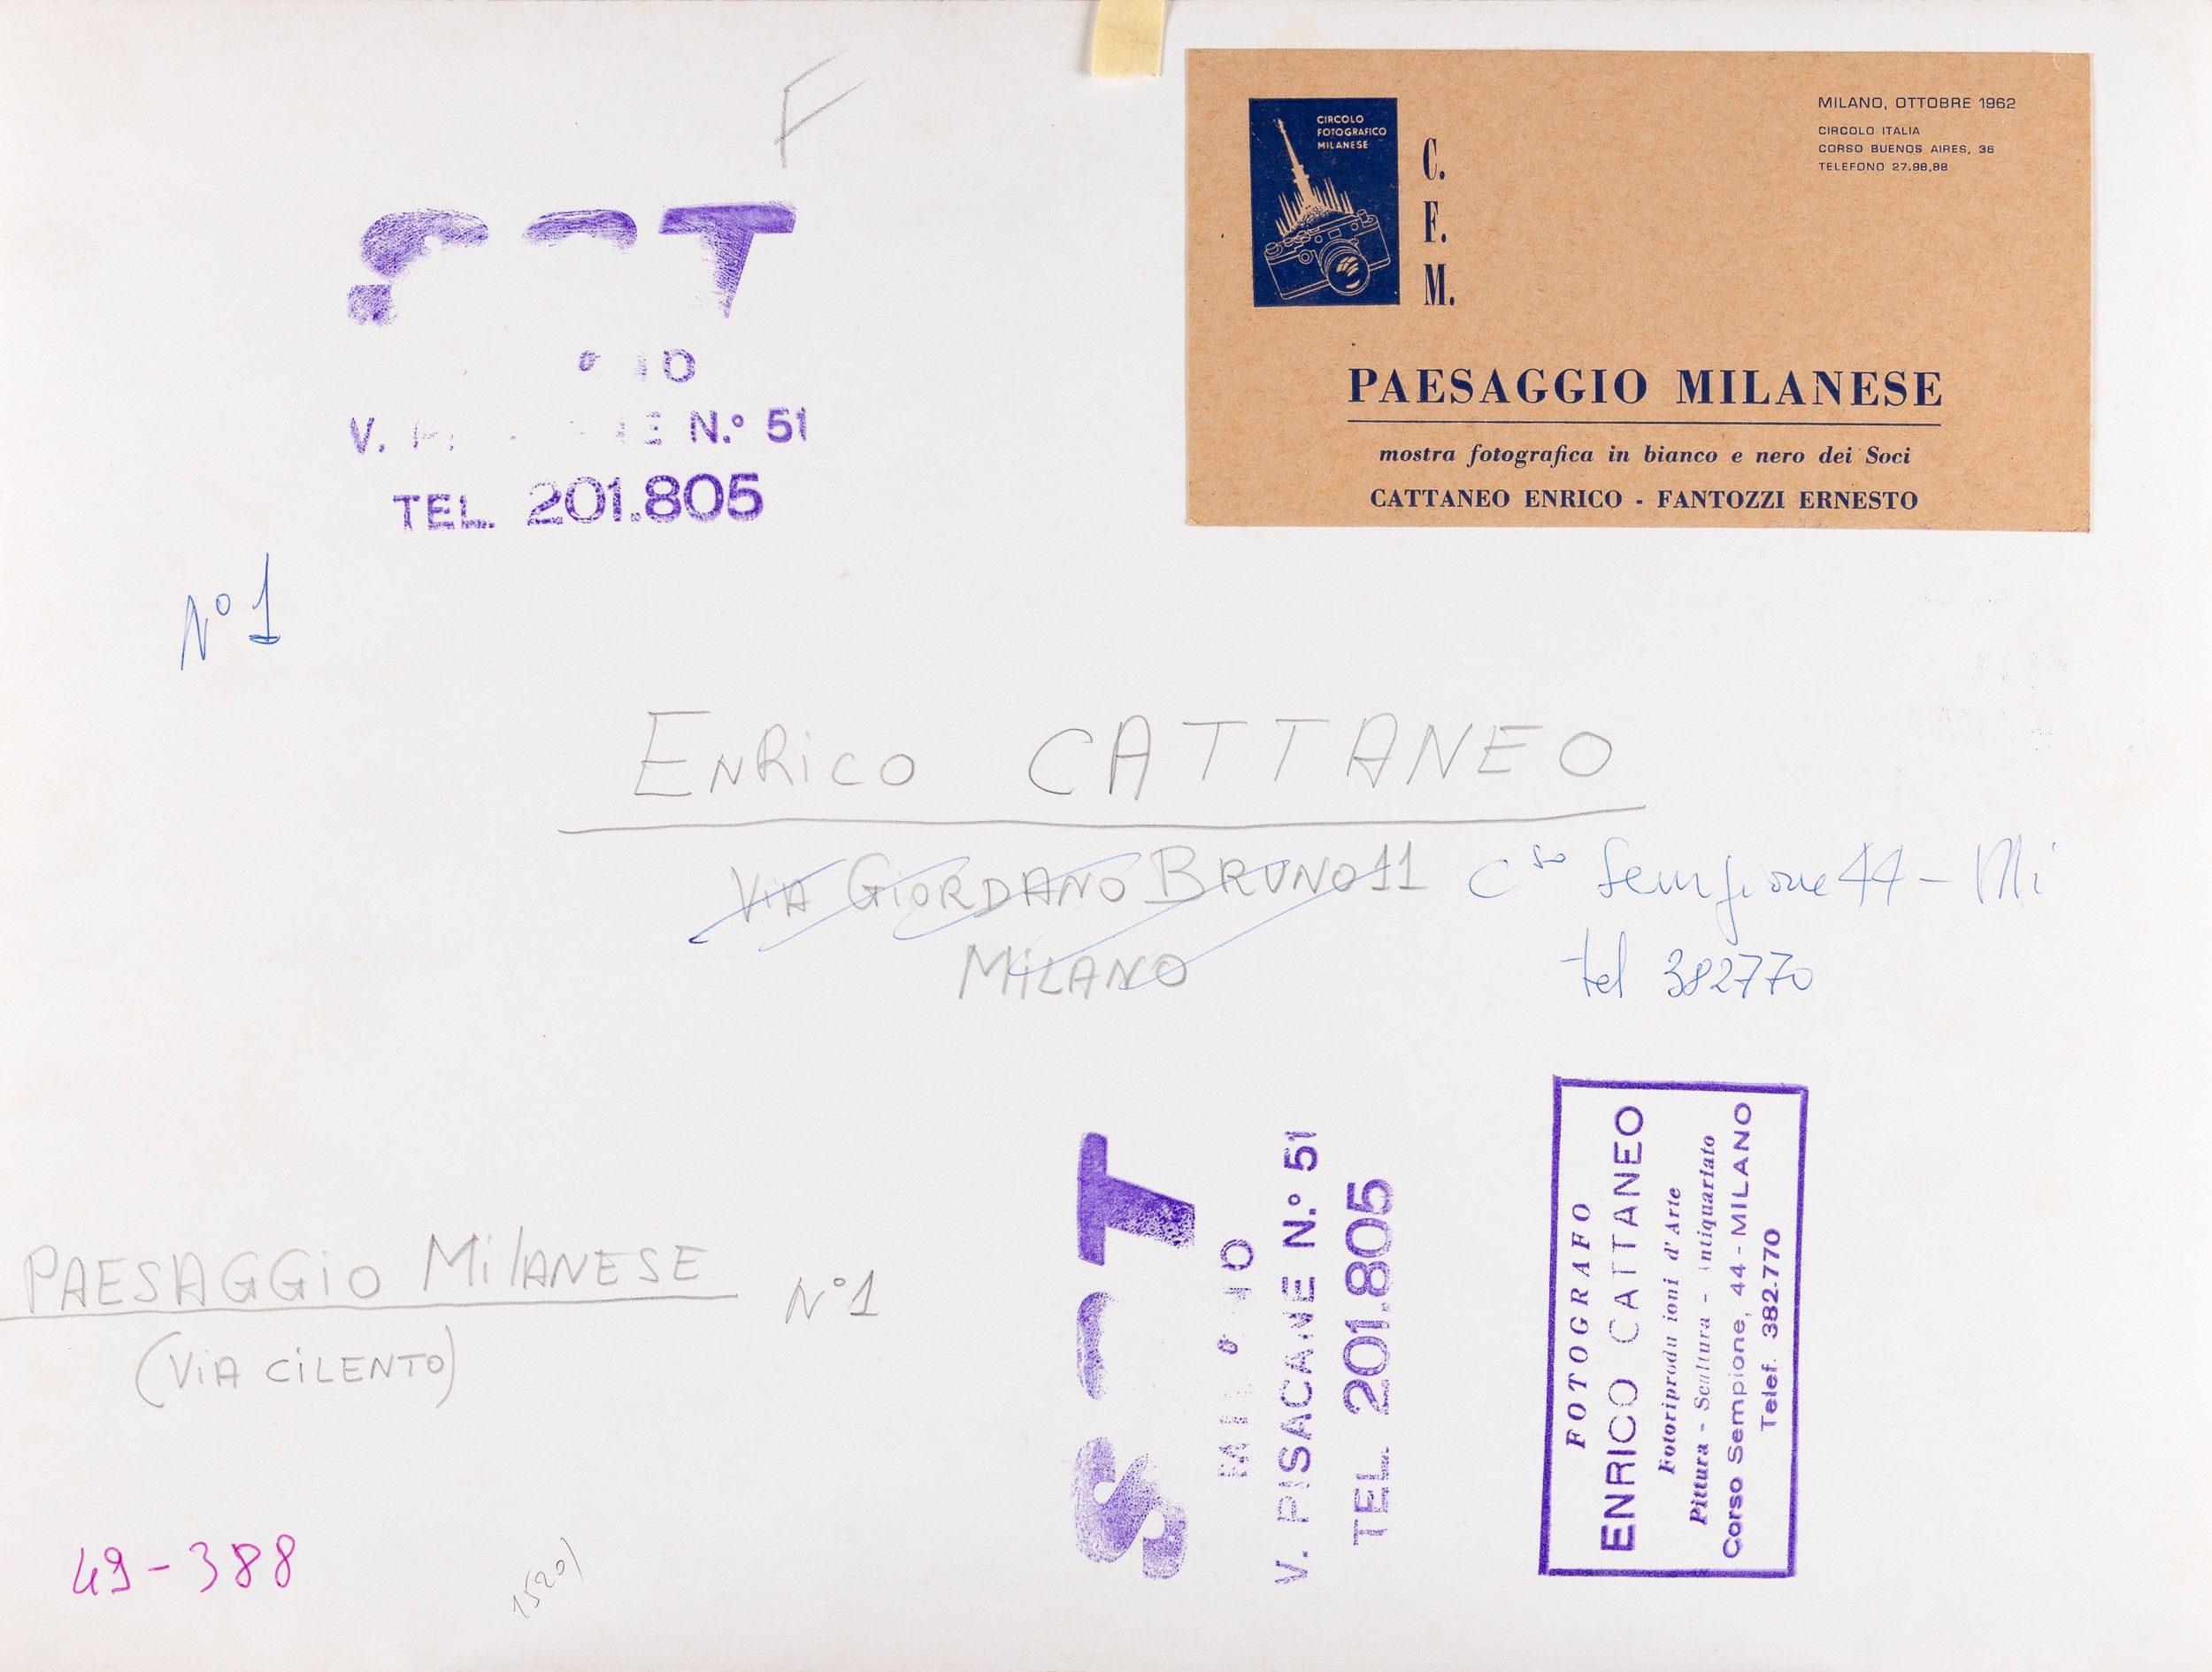 F
N.º 51
TEL. 201.805
CIRCOLO
FOTOGRAFICO
MILANESE
C.
F.
M.
MILANO, OTTOBRE 1962
CIRCOLO ITALIA
CORSO BUENOS AIRES, 36
TELEFONO 27.98.88
PAESAGGIO MILANESE
mostra fotografica in bianco e nero dei Soci
CATTANEO ENRICO - FANTOZZI ERNESTO
Nº 1
ENRiCO CATTANEO
ViA GiORDANO BRUNO 11
MiLANO
C.so Sempione 44 - Mi
tel 382770
PAESAGGiO MilANESE
N°1
(ViA CiLENTO)
49-388
V. PISACANE N.º 51
TEL. 201.805
FOTOGRAFO
ENRICO CATTANEO
Fotoriproduzioni d'Arte
Pittura - Scultura - Antiquariato
Corso Sempione, 44 - MILANO
Telef. 382.770